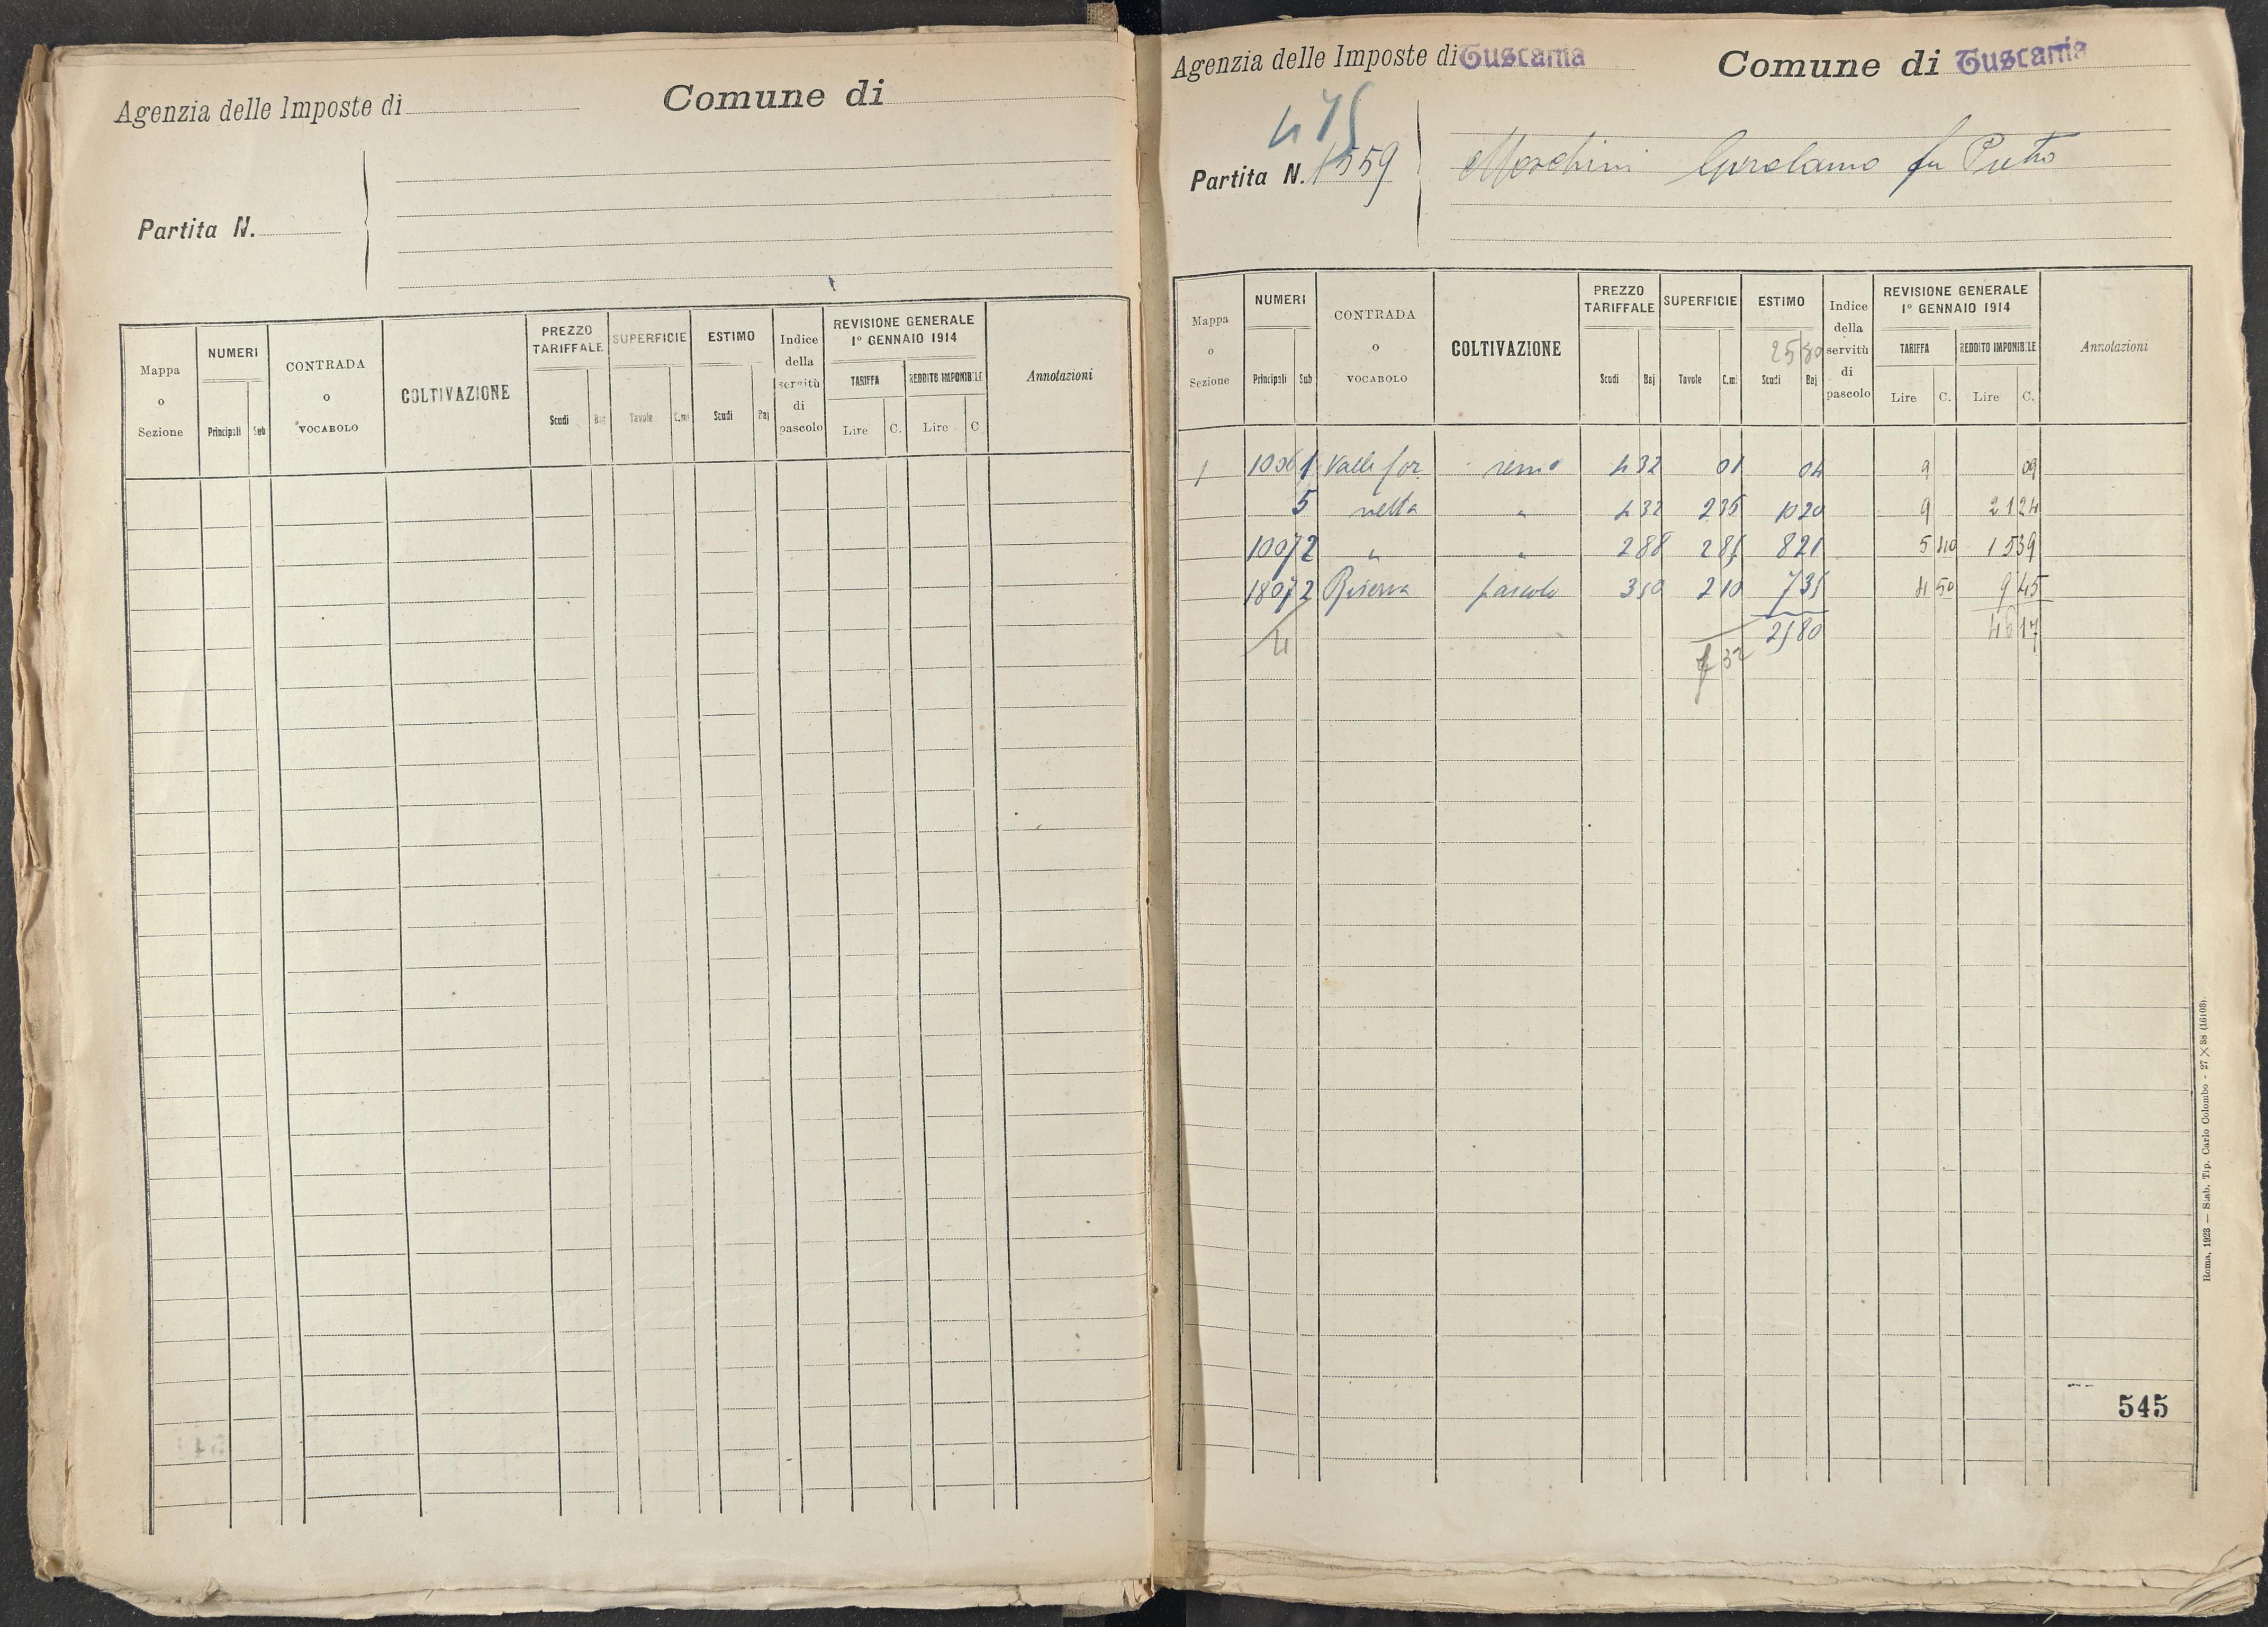 Agenzia delle Imposte di
Comune di
Partita N.
Mappa o Sezione
NUMERI
Principali Sub
CONTRADA o VOCABOLO
COLTIVAZIONE
PREZZO TARIFFALE
Scudi Baj
SUPERFICIE
Tavole C.mi
ESTIMO
Scudi Baj
Indice della servitù di pascolo
REVISIONE GENERALE
1° GENNAIO 1914
TARIFFA REDDITO IMPONIBILE
Lire C. Lire C
Annotazioni
Agenzia delle Imposte di Tuscania
Comune di Tuscania
475
Partita N. 1559
Girolamo fu Pietro
Mappa o Sezione
NUMERI
Principali Sub
CONTRADA o VOCABOLO
COLTIVAZIONE
PREZZO TARIFFALE
Scudi Baj
SUPERFICIE
Tavole C.mi
ESTIMO
25 80
Scudi Baj
Indice della servitù di pascolo
REVISIONE GENERALE
1° GENNAIO 1914
TARIFFA REDDITO IMPONIBILE
Lire C. Lire C.
Annotazioni
1 1006 1 Valle 4 32 01 04 9 09
5 4 32 2 36 10 20 9 21 24
1007 2 " " 2 88 2 85 8 21 5 40 15 39
1807 2 Riserva pascolo 3 50 2 10 7 35 4 50 9 45
4 7 32 25 80 46 17
545
Roma, 1923 — Stab. Tip. Carlo Colombo - 27 X 38 (16103).